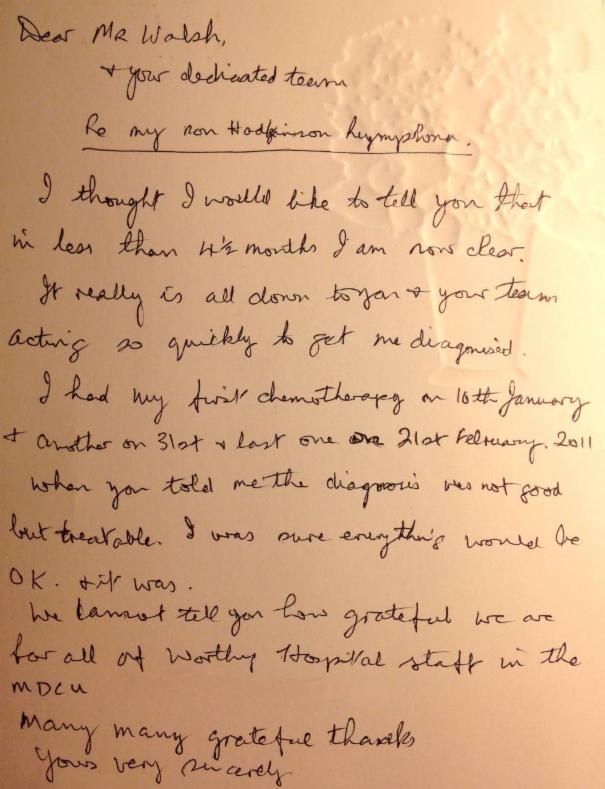 Dear Mr Walsh,
+ your dedicated team
Re my non Hodkinson
I thought I would like to tell you that
in less than 4½ months I am now clear.
It really is all down to you + your team
acting so quickly to get me diagnosised.
I had my first chemotherapy on 10th January
+ another on 31st + last one on 21st February. 2011
When you told me the diagnosis was not good
but treatable. I was sure everything would be
OK. + it was.
We cannot tell you how grateful we are
for all of Worthy Hospital staff in the
MDCU
Many many grateful thanks
Yours very sincerely